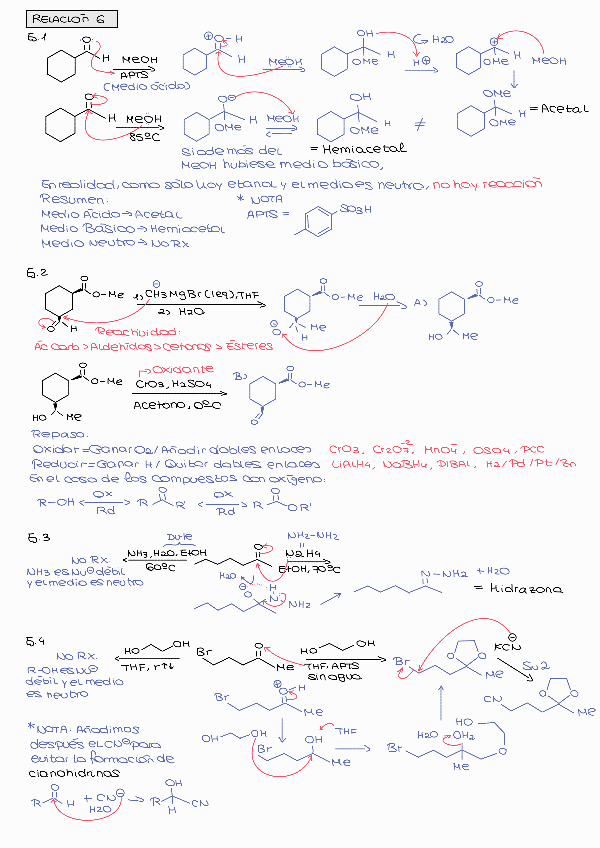 RELACIÓN 6
5.1
MeOH
APTS
(Medio ácido)
MeOH
OH
OMe
H
H2O
H⊕
OMe
MeOH
MeOH
85ºC
O⊖
OMe
MeOH
OH
OMe
≠
OMe
OMe
= Acetal
Si además del = Hemiacetal
MeOH hubiese medio básico,
En realidad, como sólo hay etanol y el medio es neutro, no hay reacción
Resumen: * NOTA
Medio Ácido → Acetal APTS = SO3H
Medio Básico → Hemiacetal
Medio Neutro → No Rx
5.2
O-Me
1) CH3MgBr (1eq), THF
2) H2O
O-Me
H2O
A)
O-Me
HO Me
Reactividad:
Ác Carb > Aldehídos > Cetonas > Ésteres
Oxidante
O-Me
CrO3, H2SO4
Acetona, 0ºC
HO Me
B)
O-Me
Repaso:
Oxidar = Ganar O2 / Añadir dobles enlaces CrO3, Cr2O7-2, MnO4-, OsO4, PCC
Reducir = Ganar H / Quitar dobles enlaces LiAlH4, NaBH4, DIBAL, H2/Pd/Pt/Zn
En el caso de los compuestos con oxígeno:
R-OH Ox Rd R R' Ox Rd R OR'
5.3
No Rx.
NH3 es Nu⊖ débil
y el medio es neutro
NH3, H2O, EtOH
60ºC
NH2-NH2
N2H4
EtOH, 70ºC
H2O
NH2
N-NH2 + H2O
= Hidrazona
5.4
No Rx.
R-OH es Nu⊖
débil y el medio
es neutro
HO OH
THF, r↑↓
Br
Me
HO OH
THF, APTS
sin agua
Br
Me
KCN
SN2
CN
Me
Br
Me
HO OH
Br
OH
Me
THF
H2O
OH2
HO
Br
Me
*NOTA: Añadimos
después el CN⊖ para
evitar la formación de
cianohidrinas
R H + CN⊖ → R CN
H2O
OH